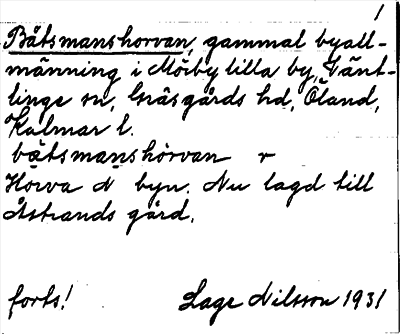 1
Båtsmanshorvan, gammal byall-
männing i Mörby lilla by, Vänt-
linge sn, Gräsgårds hd, Öland,
Kalmar l.
båtsmanshörvan r
Horva N byn. Nu lagd till
Åstrands gård.
forts! Lage Nilsson 1931